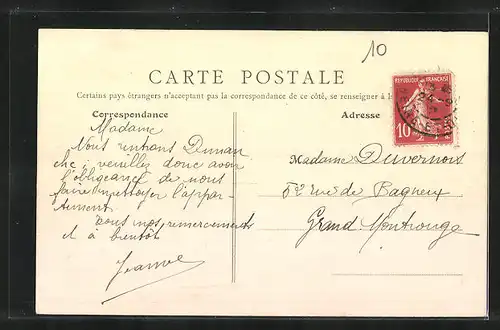 10
CARTE POSTALE
Certains pays étrangers n'acceptant pas la correspondance de ce côté, se renseigner à la
Correspondance
Adresse
REPUBLIQUE FRANÇAISE
10
Madame
Nous rentrons Diman
che ; veuillez donc avoir
l'obligeance de nous
faire nettoyer l'appar-
tement.
Tous nos remerciements
et à bientôt
Jeanne
Madame Duvernois
52 rue de Bagneux
Grand Montrouge